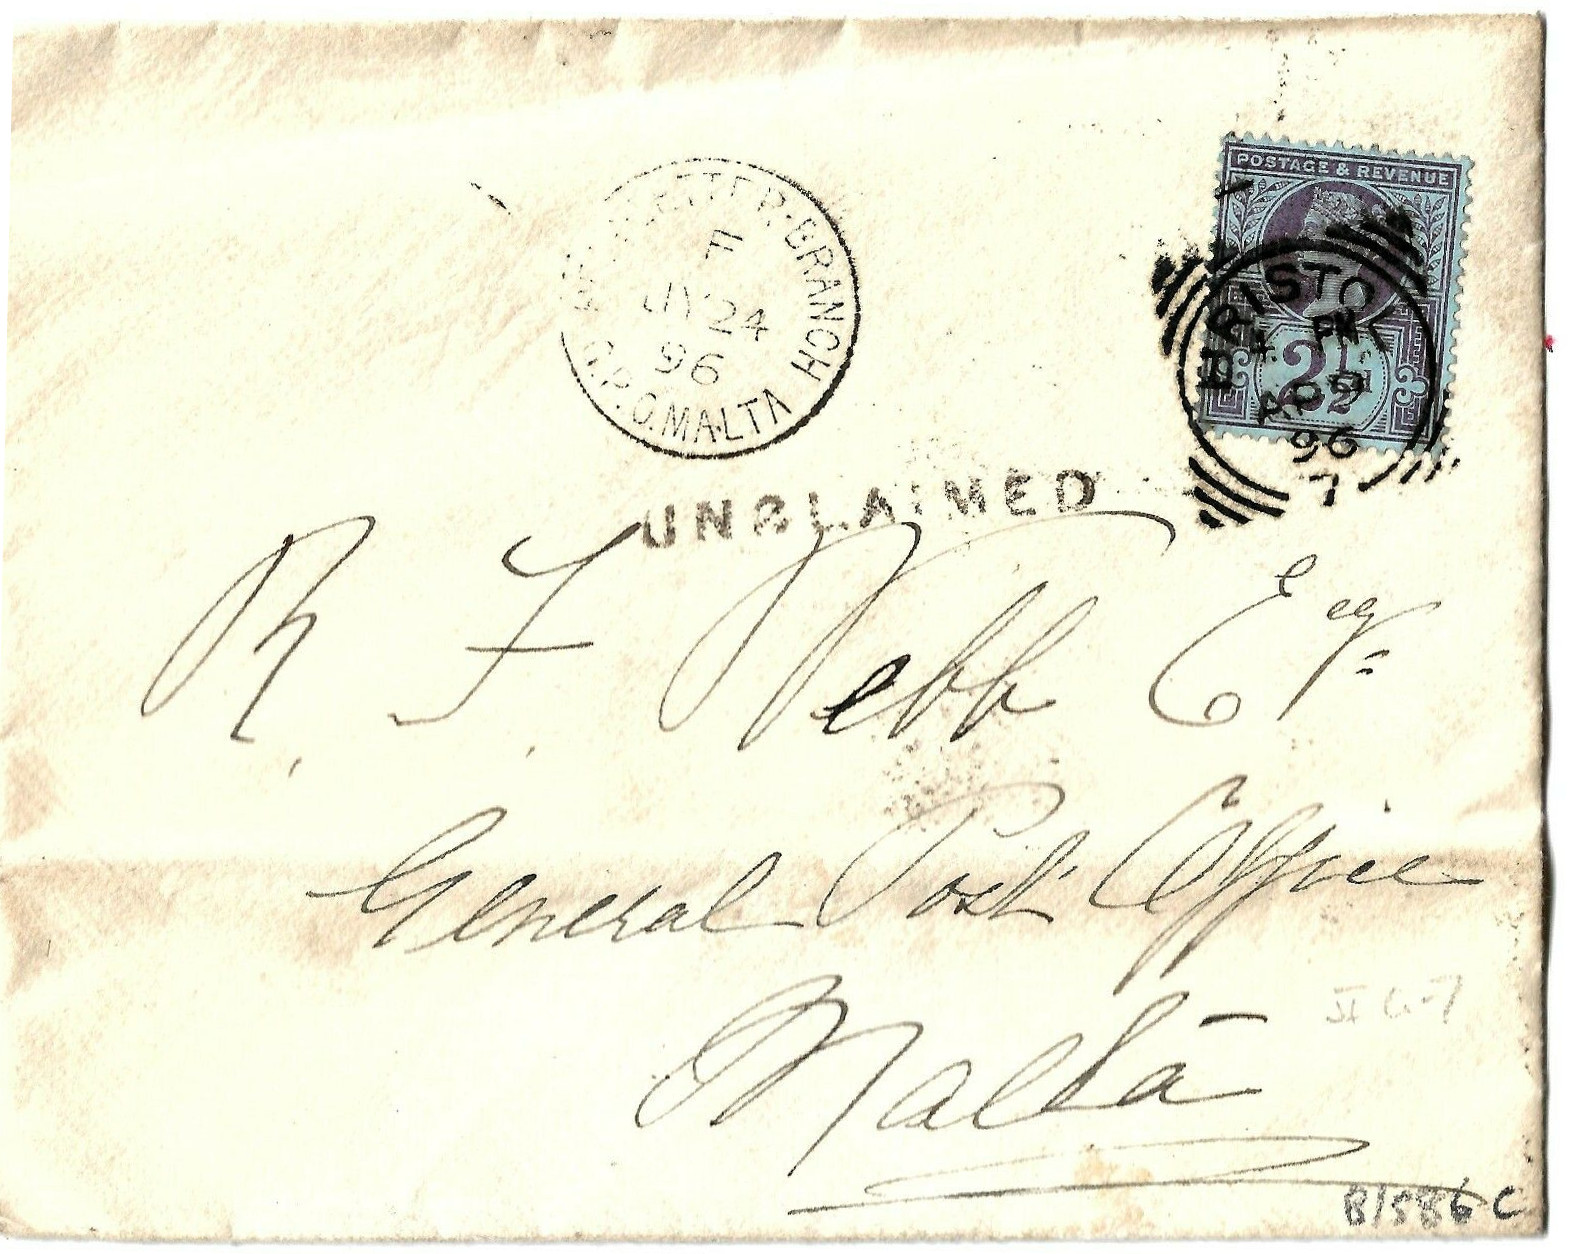 POSTAGE & REVENUE
2½
BRISTOL
4 PM
AP 9
96
7
LETTER-BRANCH
F
JY 24
96
G.P.O. MALTA
UNCLAIMED
R. F. Webb Esq.
General Post Office
Malta
B/586 C